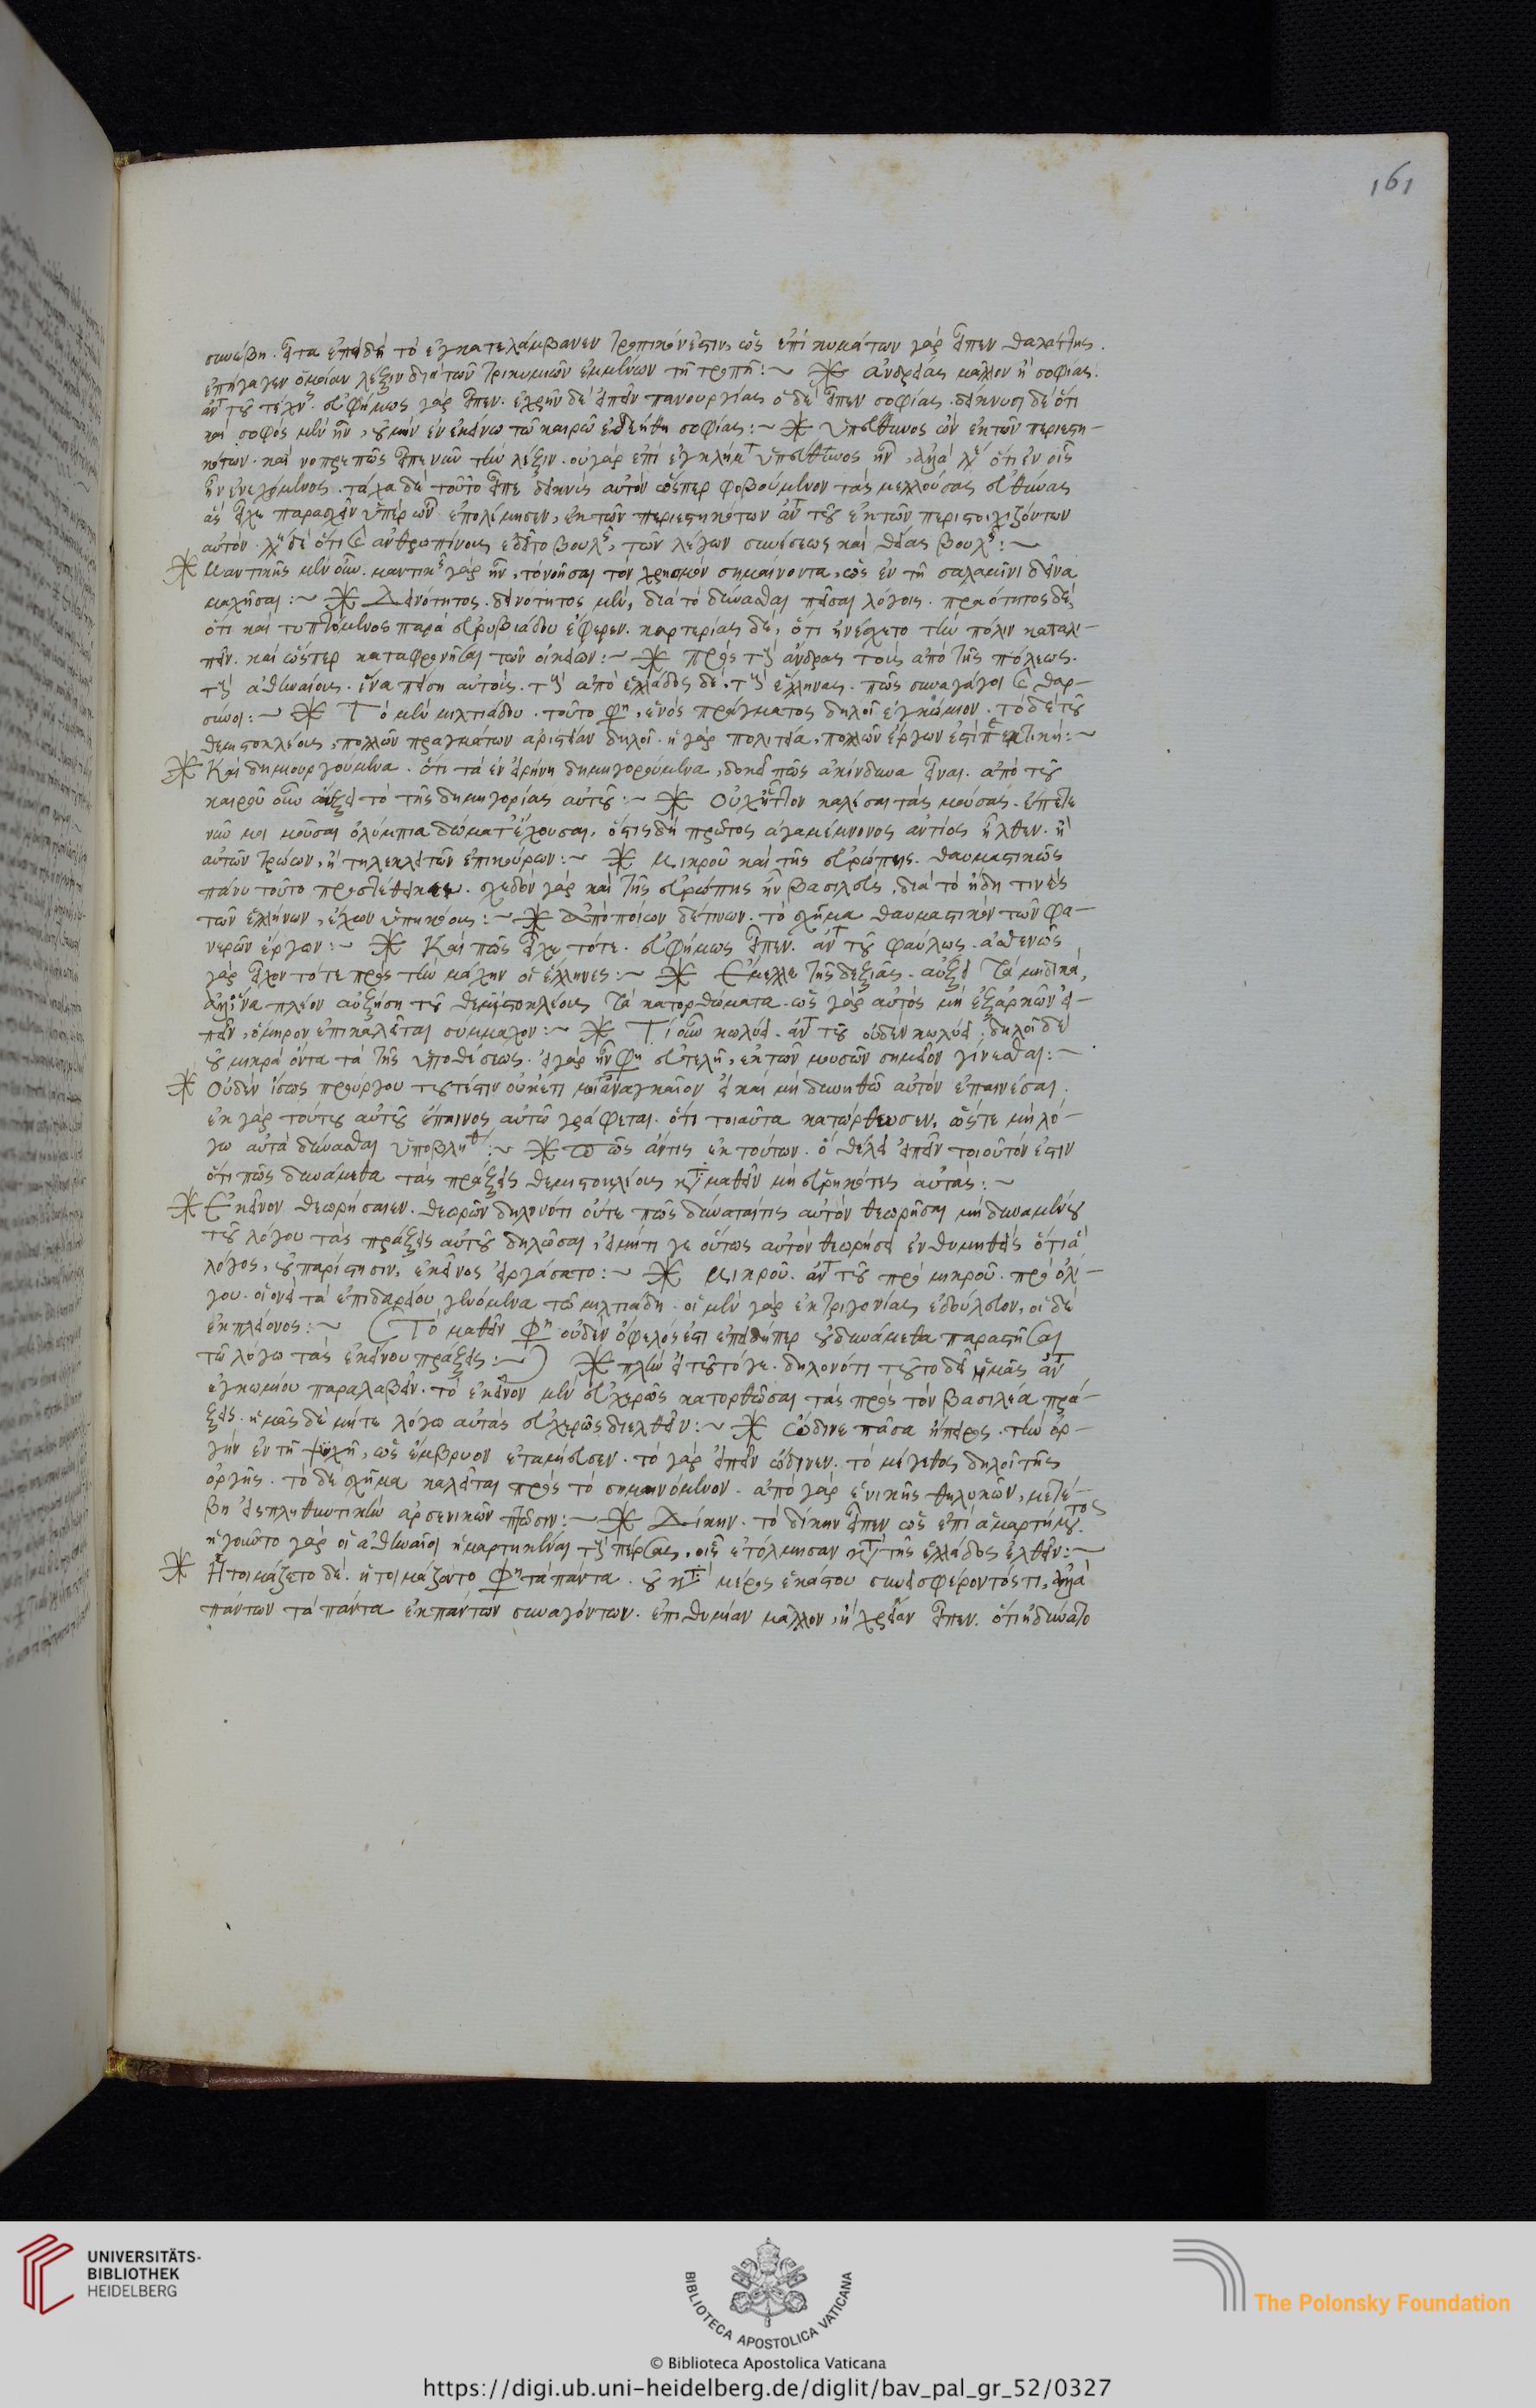 161
συνέβη. εἶτα ἐπειδὴ τὸ ἐγκατελάμβανεν τροπικόν ἐστιν, ὡς ἐπὶ κυμάτων γὰρ εἶπεν θαλάττης.
ἐπήγαγεν ὁμοίαν λέξιν διὰ τῶν τρικυμιῶν ἐμμένων τῇ τροπῇ:~ ※ ἀνδρείας μᾶλλον ἢ σοφίας.
ἀντὶ τοῦ τέχνης. εὐφήμως γὰρ εἶπεν. ἐχρῆν δὲ εἰπεῖν πανουργίας ὁ δὲ εἶπεν σοφίας. δείκνυσι δὲ ὅτι
καὶ σοφὸς μὲν ἦν, οὐ μὴν ἐν ἐκείνω τῶ καιρῶ ἐδεήθη σοφίας:~ ※ ὑπεύθυνος ὢν ἐκ τῶν περιεστη-
κότων. καὶ νοπρεπῶς εἶπε νῦν τὴν λέξιν. οὐ γὰρ ἐπὶ ἐγκλήματι ὑπεύθυνος ἦν, ἀλλὰ λέγει ὅτι ἐν οἷς
ἦν ἐνεχόμενος. τάχα δὲ τοῦτο εἶπε δεικνὺς αὐτὸν ὥσπερ φοβούμενον τὰς μελλούσας εὐθύνας
ἃς εἶχε παρασχεῖν ὑπὲρ ὧν ἐπολέμησεν, ἐκ τῶν περιεστηκότων ἀντὶ τοῦ ἐκ τῶν περιστοιχιζόντων
αὐτόν. λέγει δὲ ὅτι καὶ ἀνθρωπίνοις ἐδεῖτο βουλῆς, τῶν λέγων συνέσεως καὶ θείας βουλῆς:~
※ Μαντικῆς μὲν οὖν. μαντικῆς γὰρ ἦν, τὸ νοῆσαι τὸν χρησμὸν σημαίνοντα, ὡς ἐν τῇ σαλαμῖνι δεῖνα
μαχῆσαι:~ ※ Δεινότητος. δεινότητος μὲν, διὰ τὸ δύνασθαι πεῖσαι λόγοις. πραότητος δὲ,
ὅτι καὶ τυπτόμενος παρὰ εὐρυβιάδου ἔφερεν. καρτερίας δὲ, ὅτι ἠνέσχετο τὴν πόλιν καταλι-
πεῖν. καὶ ὥσπερ καταφρονῆσαι τῶν οἰκείων:~ ※ πρὸς τοὺς ἄνδρας τοὺς ἀπὸ τῆς πόλεως.
τοὺς ἀθηναίους. ἵνα πείσῃ αὐτούς. τοὺς ἀπὸ ἑλλάδος δὲ. τοὺς ἕλληνας. πῶς συναγάγοι καὶ θαρ-
σύνοι:~ ※ Τὸ μὲν μιλτιάδου. τοῦτο φησὶν, ἑνὸς πράγματος δηλοῖ ἐγκώμιον. τὸ δὲ τοῦ
θεμιστοκλέους, πολλῶν πραγμάτων ἀριστείαν δηλοῖ. ἡ γὰρ πολιτεία, πολλῶν ἔργων ἐστὶ περιεκτική:~
※ Καὶ δημιουργούμενα. ὅτι τὰ ἐν εἰρήνῃ δημηγορούμενα, δοκεῖ πῶς ἀκίνδυνα εἶναι. ἀπὸ τοῦ
καιροῦ οὖν αὔξει τὸ τῆς δημηγορίας αὐτοῦ:~ ※ Οὐχ ἧττον καλέσαι τὰς μούσας. ἔσπετε
νῦν μοι μοῦσαι ὀλύμπια δώματ' ἔχουσαι, ὅστις δὴ πρῶτος ἀγαμέμνονος ἀντίος ἦλθεν. ἢ
αὐτῶν τρώων, ἢ τηλεκλειτῶν ἐπικούρων:~ ※ Μικροῦ καὶ τῆς εὐρώπης. θαυμαστικῶς
πάνυ τοῦτο προστέθεικεν. σχεδὸν γὰρ καὶ τῆς εὐρώπης ἦν βασιλεὺς, διὰ τὸ ἤδη τινὰς
τῶν ἑλλήνων, ἔχων ὑπηκόους:~ ※ Ἀπὸ ποίων δείπνων. τὸ σχῆμα θαυμαστικὸν τῶν φα-
νερῶν ἔργων:~ ※ Καὶ πῶς εἶχε τότε. εὐφήμως εἶπεν. ἀντὶ τοῦ φαύλως. ἀσθενῶς
γὰρ εἶχον τότε πρὸς τὴν μάχην οἱ ἕλληνες:~ ※ Ἔμελλε τῆς δεξιᾶς. αὔξει τὰ μηδικὰ,
ἀλλ' ἵνα πλέον αὐξήσῃ τοῦ θεμιστοκλέους τὰ κατορθώματα. ὡς γὰρ αὐτὸς μὴ ἐξαρκῶν εἰ-
πεῖν, ὅμηρον ἐπικαλεῖται σύμμαχον:~ ※ Τί οὖν κωλύει. ἀντὶ τοῦ οὐδὲν κωλύει. δηλοῖ δὲ
οὐ μικρὰ ὄντα τὰ τῆς ὑποθέσεως. εἰ γὰρ ἦν φησὶν εὐτελῆ, ἐκ τῶν μουσῶν σημεῖον γίνεσθαι:~
※ Οὐδὲν ἴσως προὔργου τουτέστιν οὐκέτι μοι ἀναγκαῖον εἰ καὶ μὴ δυνηθῶ αὐτὸν ἐπαινέσαι.
ἐκ γὰρ τούτου αὐτοῦ ἔπαινος αὐτῶ γράφεται. ὅτι τοιαῦτα κατώρθωσεν, ὥστε μὴ λό-
γω αὐτὰ δύνασθαι ὑποβληθῆναι:~ ※ Πῶς ἄν τις ἐκ τούτων. ὃ θέλει εἰπεῖν τοιοῦτόν ἐστιν
ὅτι πῶς δυνάμεθα τὰς πράξεις θεμιστοκλέους καταμαθεῖν μὴ εὑρηκότες αὐτάς:~
※ Ἐκεῖνον θεωρήσαιεν. θεωρῶν δηλονότι οὔτε πῶς δύναταί τις αὐτὸν θεωρῆσαι μὴ δυναμένου
τοῦ λόγου τὰς πράξεις αὐτοῦ δηλῶσαι, εἰ μή τί γε οὕτως αὐτὸν θεωρήσει ἐνθυμηθεὶς ὅτι ἃ
λόγος, οὐ παρίστησιν, ἐκεῖνος εἰργάσατο:~ ※ Μικροῦ. ἀντὶ τοῦ πρὸ μικροῦ. πρὸ ὀλί-
γου. οἱονεὶ τὰ ἐπὶ δαρείου γενόμενα τῶ μιλτιάδη. οἱ μὲν γὰρ ἐκ τριγονίας ἐδούλευον, οἱ δὲ
ἐκ πλείονος:~ (Τὸ μαθεῖν φησὶν οὐδὲν ὄφελός ἐστι ἐπειδήπερ οὐ δυνάμεθα παραστῆσαι
τῶ λόγω τὰς ἐκείνου πράξεις:~) ※ πλὴν εἰ τοῦτό γε. δηλονότι τοῦτο δεῖ ἡμᾶς ἀντὶ
ἐγκωμίου παραλαβεῖν. τὸ ἐκεῖνον μὲν εὐχερῶς κατορθῶσαι τὰς πρὸς τὸν βασιλέα πρά-
ξεις. ἡμᾶς δὲ μήτε λόγω αὐτὰς εὐχερῶς διελθεῖν:~ ※ Ὤδινε πᾶσα ἤπειρος. τὴν ὀρ-
γὴν ἐν τῇ ψυχῇ, ὡς ἔμβρυον ἐταμίευσεν. τὸ γὰρ εἰπεῖν ὤδινεν. τὸ μέγεθος δηλοῖ τῆς
ὀργῆς. τὸ δὲ σχῆμα καλεῖται πρὸς τὸ σημαινόμενον. ἀπὸ γὰρ ἑνικῆς θηλυκῶν, μετέ-
βη εἰς πληθυντικὴν ἀρσενικῶν πτῶσιν:~ ※ Δίκην. τὸ δίκην εἶπεν ὡς ἐπὶ ἁμαρτήματος
ἡγοῦντο γὰρ οἱ ἀθηναῖοι ἡμαρτηκέναι τοὺς πέρσας, οἷς ἐτόλμησαν κατὰ τῆς ἑλλάδος ἐλθεῖν:~
※ Ἡτοιμάζετο δὲ. ἡτοιμάζοντο φησὶν τὰ πάντα. οὐ κατὰ μέρος ἑκάστου συνεισφέροντός τι, ἀλλὰ
πάντων τὰ πάντα ἐκ πάντων συναγόντων. ἐπιθυμίαν μᾶλλον, ἢ χρείαν εἶπεν. ὅτι ἠδύνατο
UNIVERSITÄTS-
BIBLIOTHEK
HEIDELBERG
BIBLIOTECA APOSTOLICA VATICANA
The Polonsky Foundation
© Biblioteca Apostolica Vaticana
https://digi.ub.uni-heidelberg.de/diglit/bav_pal_gr_52/0327